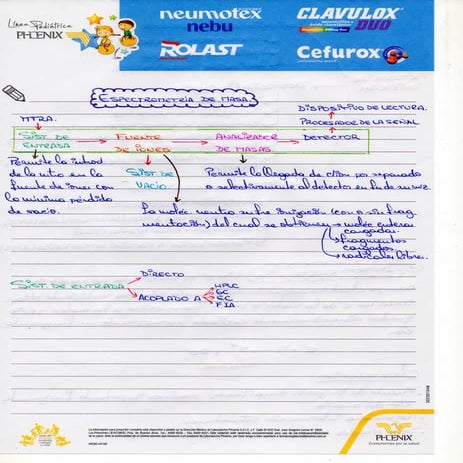 Línea Pediátrica
PHOENIX
neumotex
nebu
ROLAST
CLAVULOX
DUO
Cefurox
ESPECTROMETRÍA DE MASA.
DISPOSITIVO DE LECTURA.
PROCESADOR DE LA SEÑAL
MTRA.
SIST. DE ENTRADA
FUENTE DE IONES
ANALIZADOR DE MASAS
DETECTOR
Permite la introd de la mta en la fuente de iones con la mínima pérdida de vacío.
SIST. DE VACÍO
Permite la llegada de c/ion por separado o selectivamente al detector en fx de su m/z
La moléc. neutra sufre ionización (con o sin fragmentación) del cual se obtienen
moléc enteras cargadas
fragmentos cargados
radicales libres.
SIST. DE ENTRADA
DIRECTO
ACOPLADO A
HPLC
GC
EC
FIA
PHOENIX
Compromiso por la salud